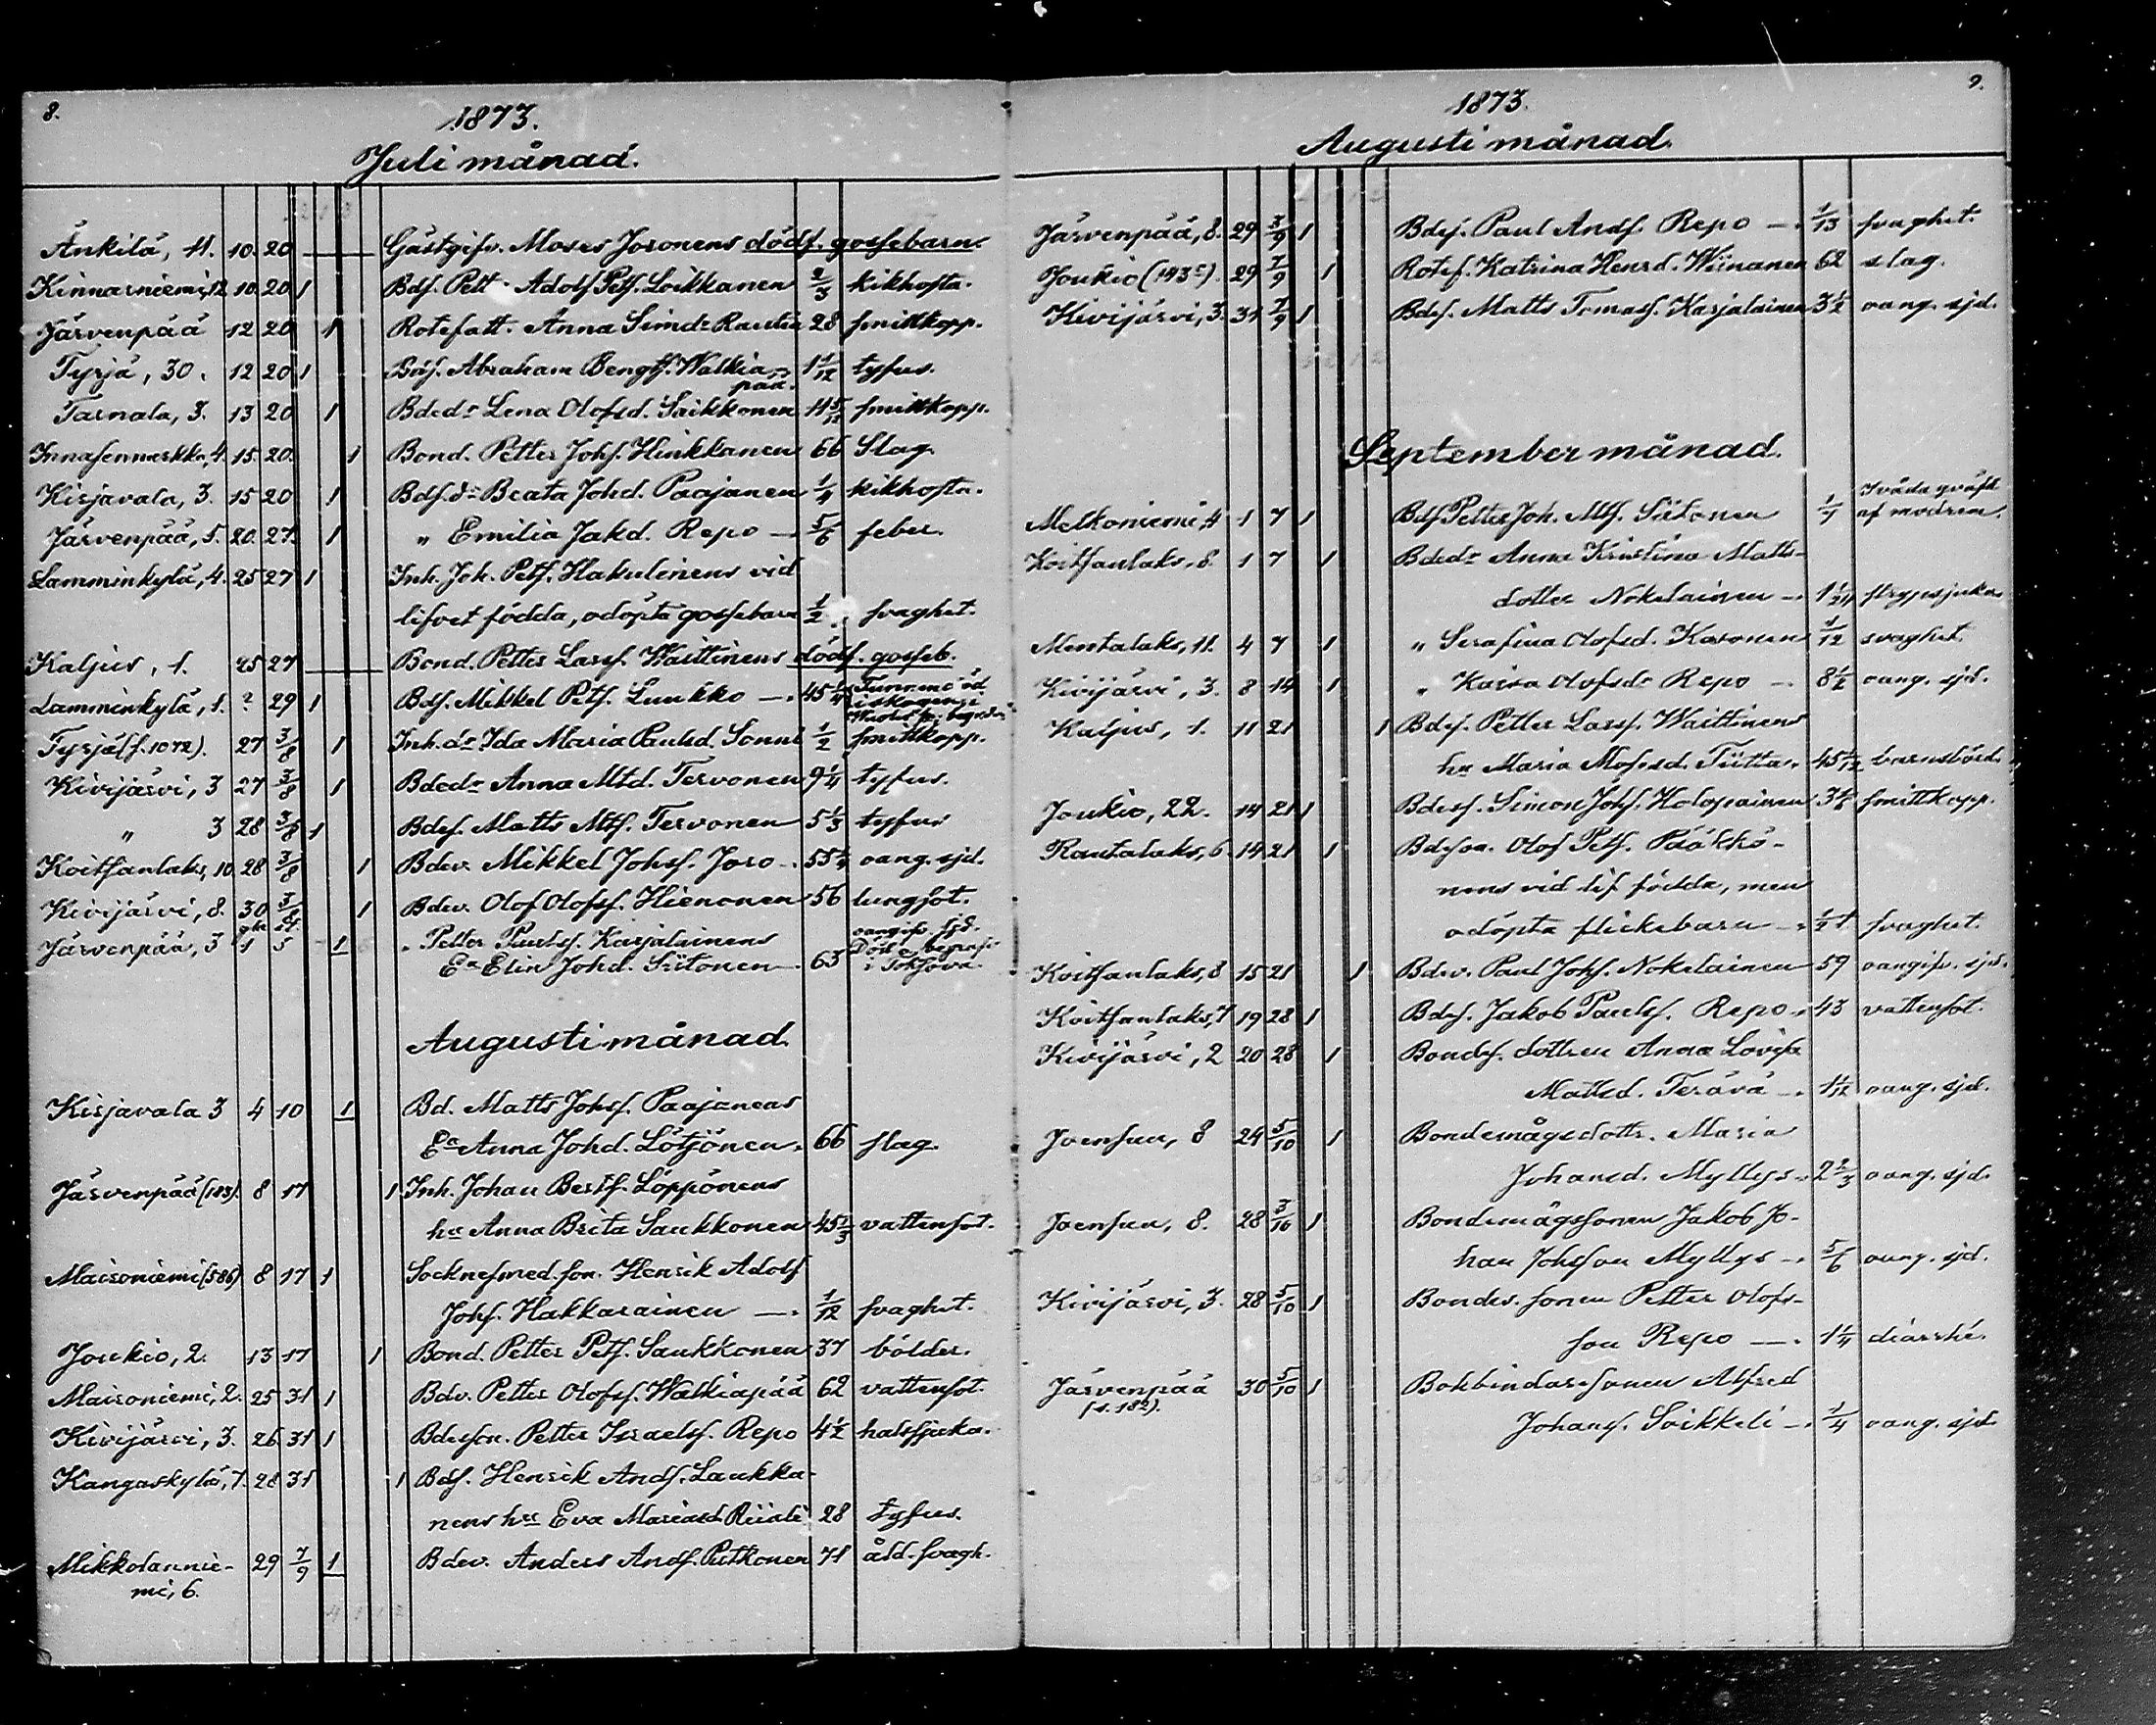 8.
1873.
Juli månad.
Änkilä, 11. 10. 20 Gästgifv. Moses Joronens dödf. gossebarn.
Kinnarniemi, 12 10. 20 1 Bdf. Pett. Adolf Petf. Loikkanen 2/3 kikhosta.
Järvenpää 12 20 1 Rotefatt. Anna Simdr Rautia 28 smittkopp.
Tyrjä, 30. 12 20 1 Bdf. Abraham Bengtf. Walkia- 1 1/12 tyfus.
pää.
Tarnala, 3. 13 20 1 Bdedr Lena Olofsd. Saikkonen 11 5/12 smittkopp.
Innasennurkka, 4. 15. 20. 1 Bond. Petter Johf. Hinkkanen 66 Slag.
Kirjavala, 3. 15 20 1 Bdf.dr Beata Johd. Paajanen 1/4 kikhosta.
Järvenpää, 5. 20. 27. 1 " Emilia Jakd. Repo — 5/6 feber.
Lamminkylä, 4. 25 27 1 Inh. Joh. Petf. Hakulinens vid
lifvet födda, odöpta gossebarn 1/2 svaghet.
Kaljus, 1. 25 27 Bond. Petter Larsf. Waittinens dödf. gosseb.
Lamminkylä, 1. ? 29 1 Bdf. Mikkel Petf. Luukko —. 45 1/4 Funnen död
i skogen
Tyrjä (f. 1072). 27 3/8 1 Inh. dr Ida Maria Paulsd. Sonni 1/2 smittkopp.
Kivijärvi, 3 27 3/8 1 Bdedr Anna Mtd. Tervonen 9 1/4 tyfus.
" 3 28 3/8 1 Bdef. Matts Mtf. Tervonen 5 1/3 tyfus
Koitsanlaks, 10 28 3/8 1 Bdev. Mikkel Johsf. Joro —. 55 1/4 oang. sjd.
Kivijärvi, 8. 30 3/8 1 Bdev. Olof Olofsf. Hienonen 56 lungsot.
Järvenpää, 3 1 5 1 " Petter Paulsf. Karjalainens oangifv. sjd.
Ea Elin Johd. Siitonen — 63 Död o. begrafv. i
Augusti månad.
Kirjavala 3 4 10 1 Bd. Matts Johsf. Paajanens
Ea Anna Johd. Lötjönen. 66 slag.
Järvenpää (183). 8 17 1 Inh. Johan Bertf. Löppönens
hu Anna Brita Saukkonen 45 2/3 vattensot.
Maisoniemi (586) 8 17 1 Socknesmed. son. Henrik Adolf
Johf. Hakkarainen —. 1/12 svaghet.
Joukio, 2. 13 17 1 Bond. Petter Petf. Saukkonen 37 bölder.
Maisoniemi, 2. 25 31 1 Bdev. Petter Olofsf. Walkiapää 62 vattensot.
Kivijärvi, 3. 26 31 1 Bdeson. Petter Israelsf. Repo 4 1/2 halssjuka.
Kangaskylä, 7. 28 31 1 Bdf. Henrik Andf. Laukka-
nens hu Eva Mariasd Riiali 28 tyfus.
Mikkolannie- 29 7/9 1 Bdev. Anders Andf. Putkonen 71 åld. svagh.
mi, 6.
9.
1873.
Augusti månad.
Järvenpää, 8. 29 3/9 1 Bdef. Paul Andf. Repo —. 1/13 svaghet.
Joukio (143c). 29 7/9 1 Rotef. Katrina Henrd. Wiinanen 62 slag.
Kivijärvi, 3. 31 7/9 1 Bdef. Matts Tomasf. Karjalainen 3 1/2 oang. sjd.
September månad.
Melkoniemi, 4 1 7 1 Bdf Petter Joh. Mtf. Siitonen 1/7
af modren.
Koitsanlaks, 8. 1 7 1 Bdedr Anna Kristina Matts-
dotter Nokelainen —. 1 1/24 strypsjuka
Mentalaks, 11. 4 7 1 " Serafina Olofsd. Karonen 1/12 svaghet.
Kivijärvi, 3. 8 14 1 " Kaisa Olofsdr Repo — 8 1/2 oang. sjd.
Kaljus, 1. 11 21 1 Bdef. Petter Larsf. Waittinens
hu Maria Mosesd. Tiitta. 45 1/12 barnsbörd.
Joukio, 22. 14 21 1 Bdesf. Simon Johf. Holopainen 3 1/2 smittkopp.
Rautalaks, 6. 14 21 1 Bdeson. Olof Petf. Pääkkö-
nens vid lif födda, men
odöpta flickebarn —. 1/2 t. svaghet.
Koitsanlaks, 8 15 21 1 Bdev. Paul Johf. Nokelainen 59 oangifv. sjd.
Koitsanlaks, 7 19 28 1 Bdef. Jakob Paulsf. Repo. 43 vattensot.
Kivijärvi, 2 20 28 1 Bondef. dottren Anna Lovisa
Mattsd. Terävä —. 1 1/12 oang. sjd.
Joensuu, 8 24 5/10 1 Bondemågsdottr. Maria
Johansd. Myllys. 2 2/3 oang. sjd.
Joensuu, 8. 28 3/10 1 Bondemågssonen Jakob Jo-
han Johsson Myllys —. 5/6 oang. sjd.
Kivijärvi, 3. 28 5/10 1 Bondes. sonen Petter Olofs-
son Repo —. 1 1/4 diarrhé.
Järvenpää 30 5/10 1 Bokbindaresonen Alfred
(s. 182). Johansf. Soikkeli —. 1/4 oang. sjd.